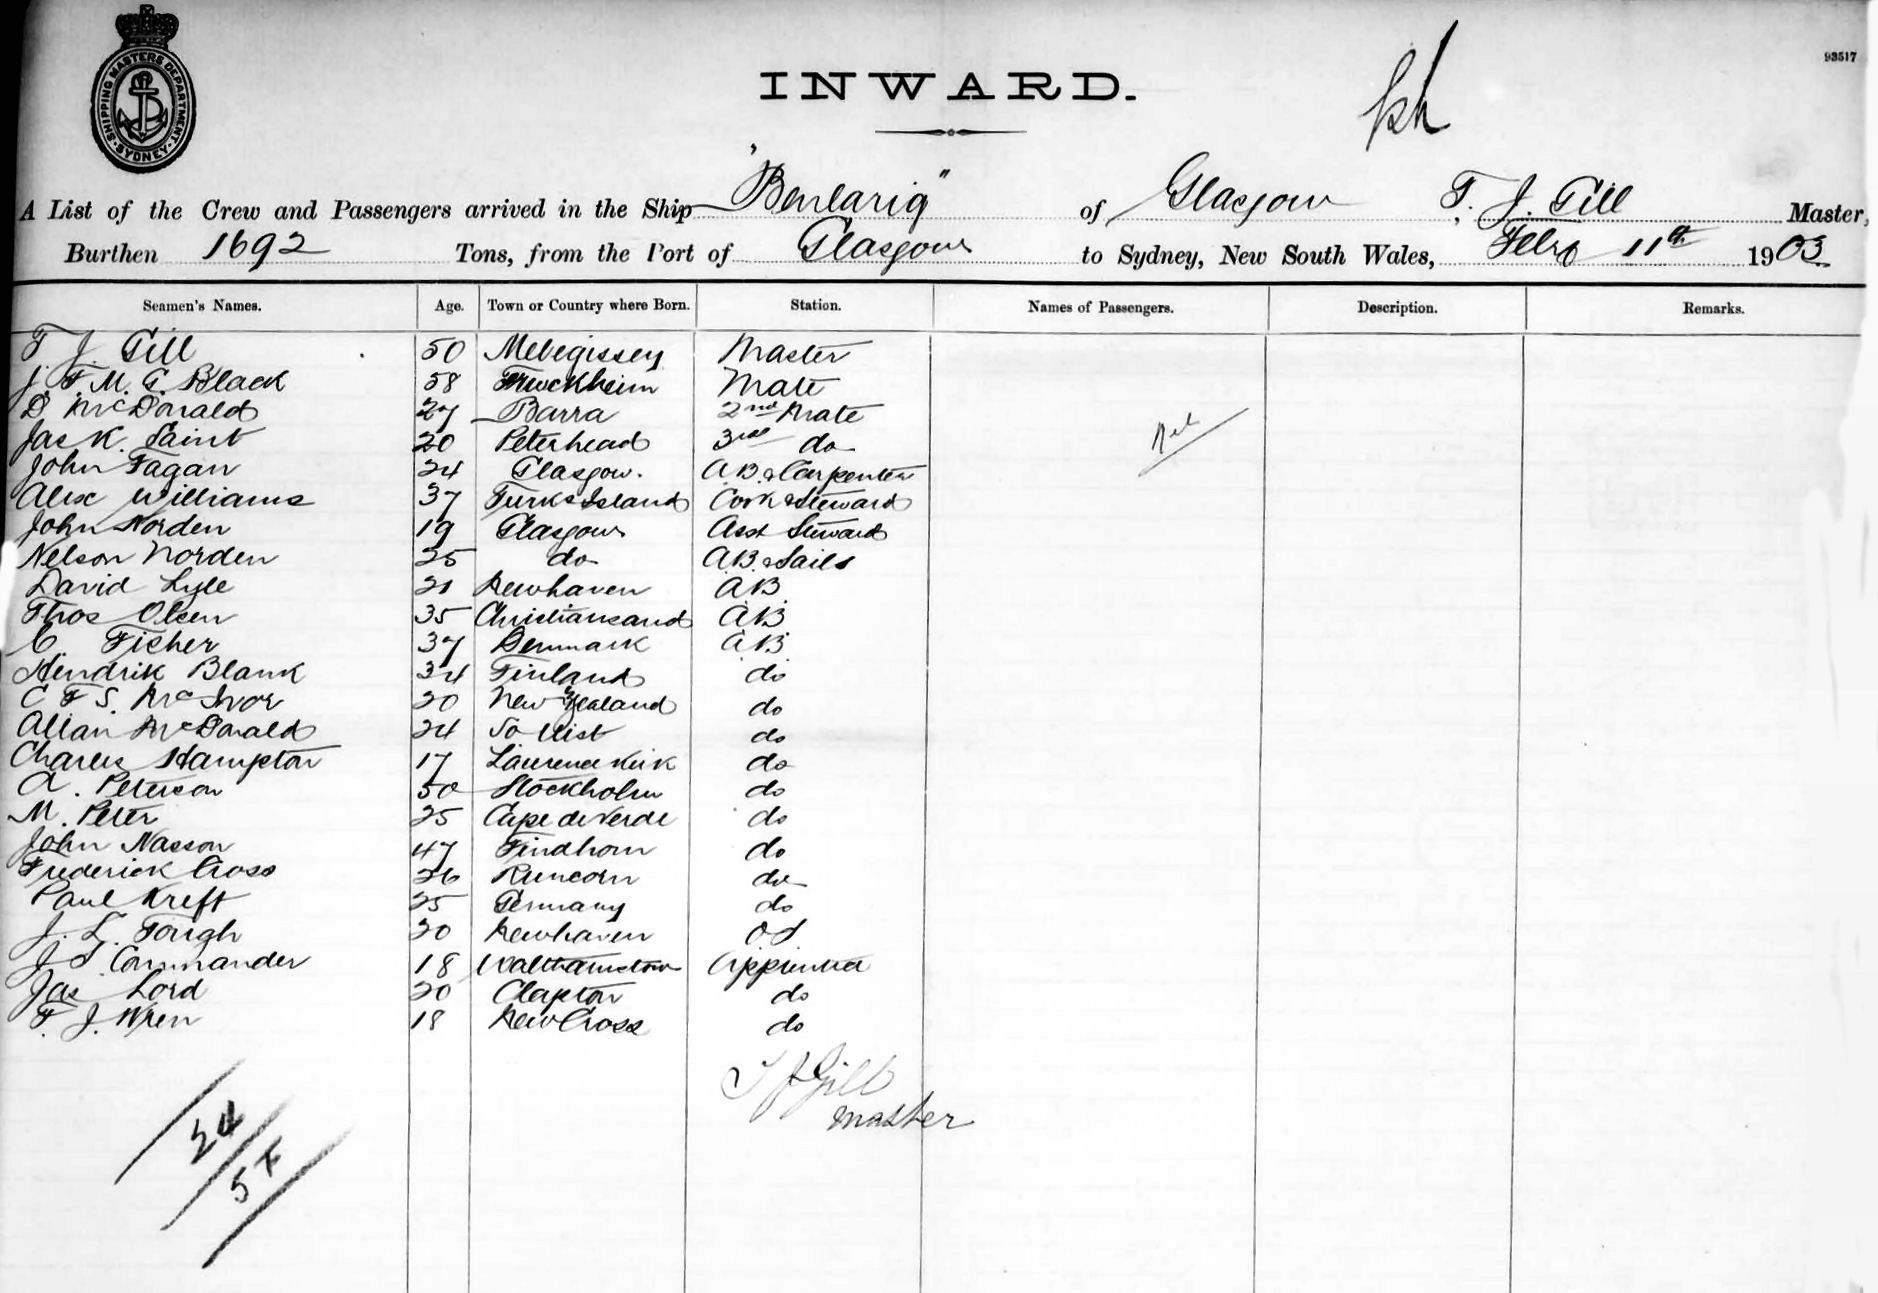 SHIPPING MASTERS DEPARTMENT. SYDNEY
93517
INWARD.
A List of the Crew and Passengers arrived in the Ship "Benlarig" of Glasgow T. J. Gill Master,
Burthen 1692 Tons, from the Port of Glasgow to Sydney, New South Wales, Feby 11th 1903
Seamen's Names. Age. Town or Country where Born. Station. Names of Passengers. Description. Remarks.
T J. Gill 50 Mevegissey Master
J. F. M. G. Black 58 Friockheim Mate
D McDonald 27 Barra 2nd Mate
Jas K. Saint 20 Peterhead 3rd do
John Fagan 24 Glasgow. A.B. & Carpenter
Alex Williams 37 Turks Island Cook & Steward
John Norden 19 Glasgow Asst Steward
Nelson Norden 25 do A.B. & Sails
David Lyle 21 Newhaven AB
Thos Olsen 35 Christiansand AB
C Fisher 37 Denmark AB
Hendrik Blank 34 Finland do
C F S. McIvor 20 New Zealand do
Allan McDonald 24 So Uist do
Charles Hampton 17 Laurencekirk do
A. Peterson 50 Stockholm do
M. Peter 25 Cape de Verde do
John Nasson 47 Findhorn do
Frederick Cross 26 Runcorn do
Paul Kreft 25 Germany do
J. L. Tough 20 Newhaven OS
J S Commander 18 Walthamstow Apprentice
Jas Lord 20 Clapton do
F. J. Wren 18 New Cross do
T J Gill
Master
24
57